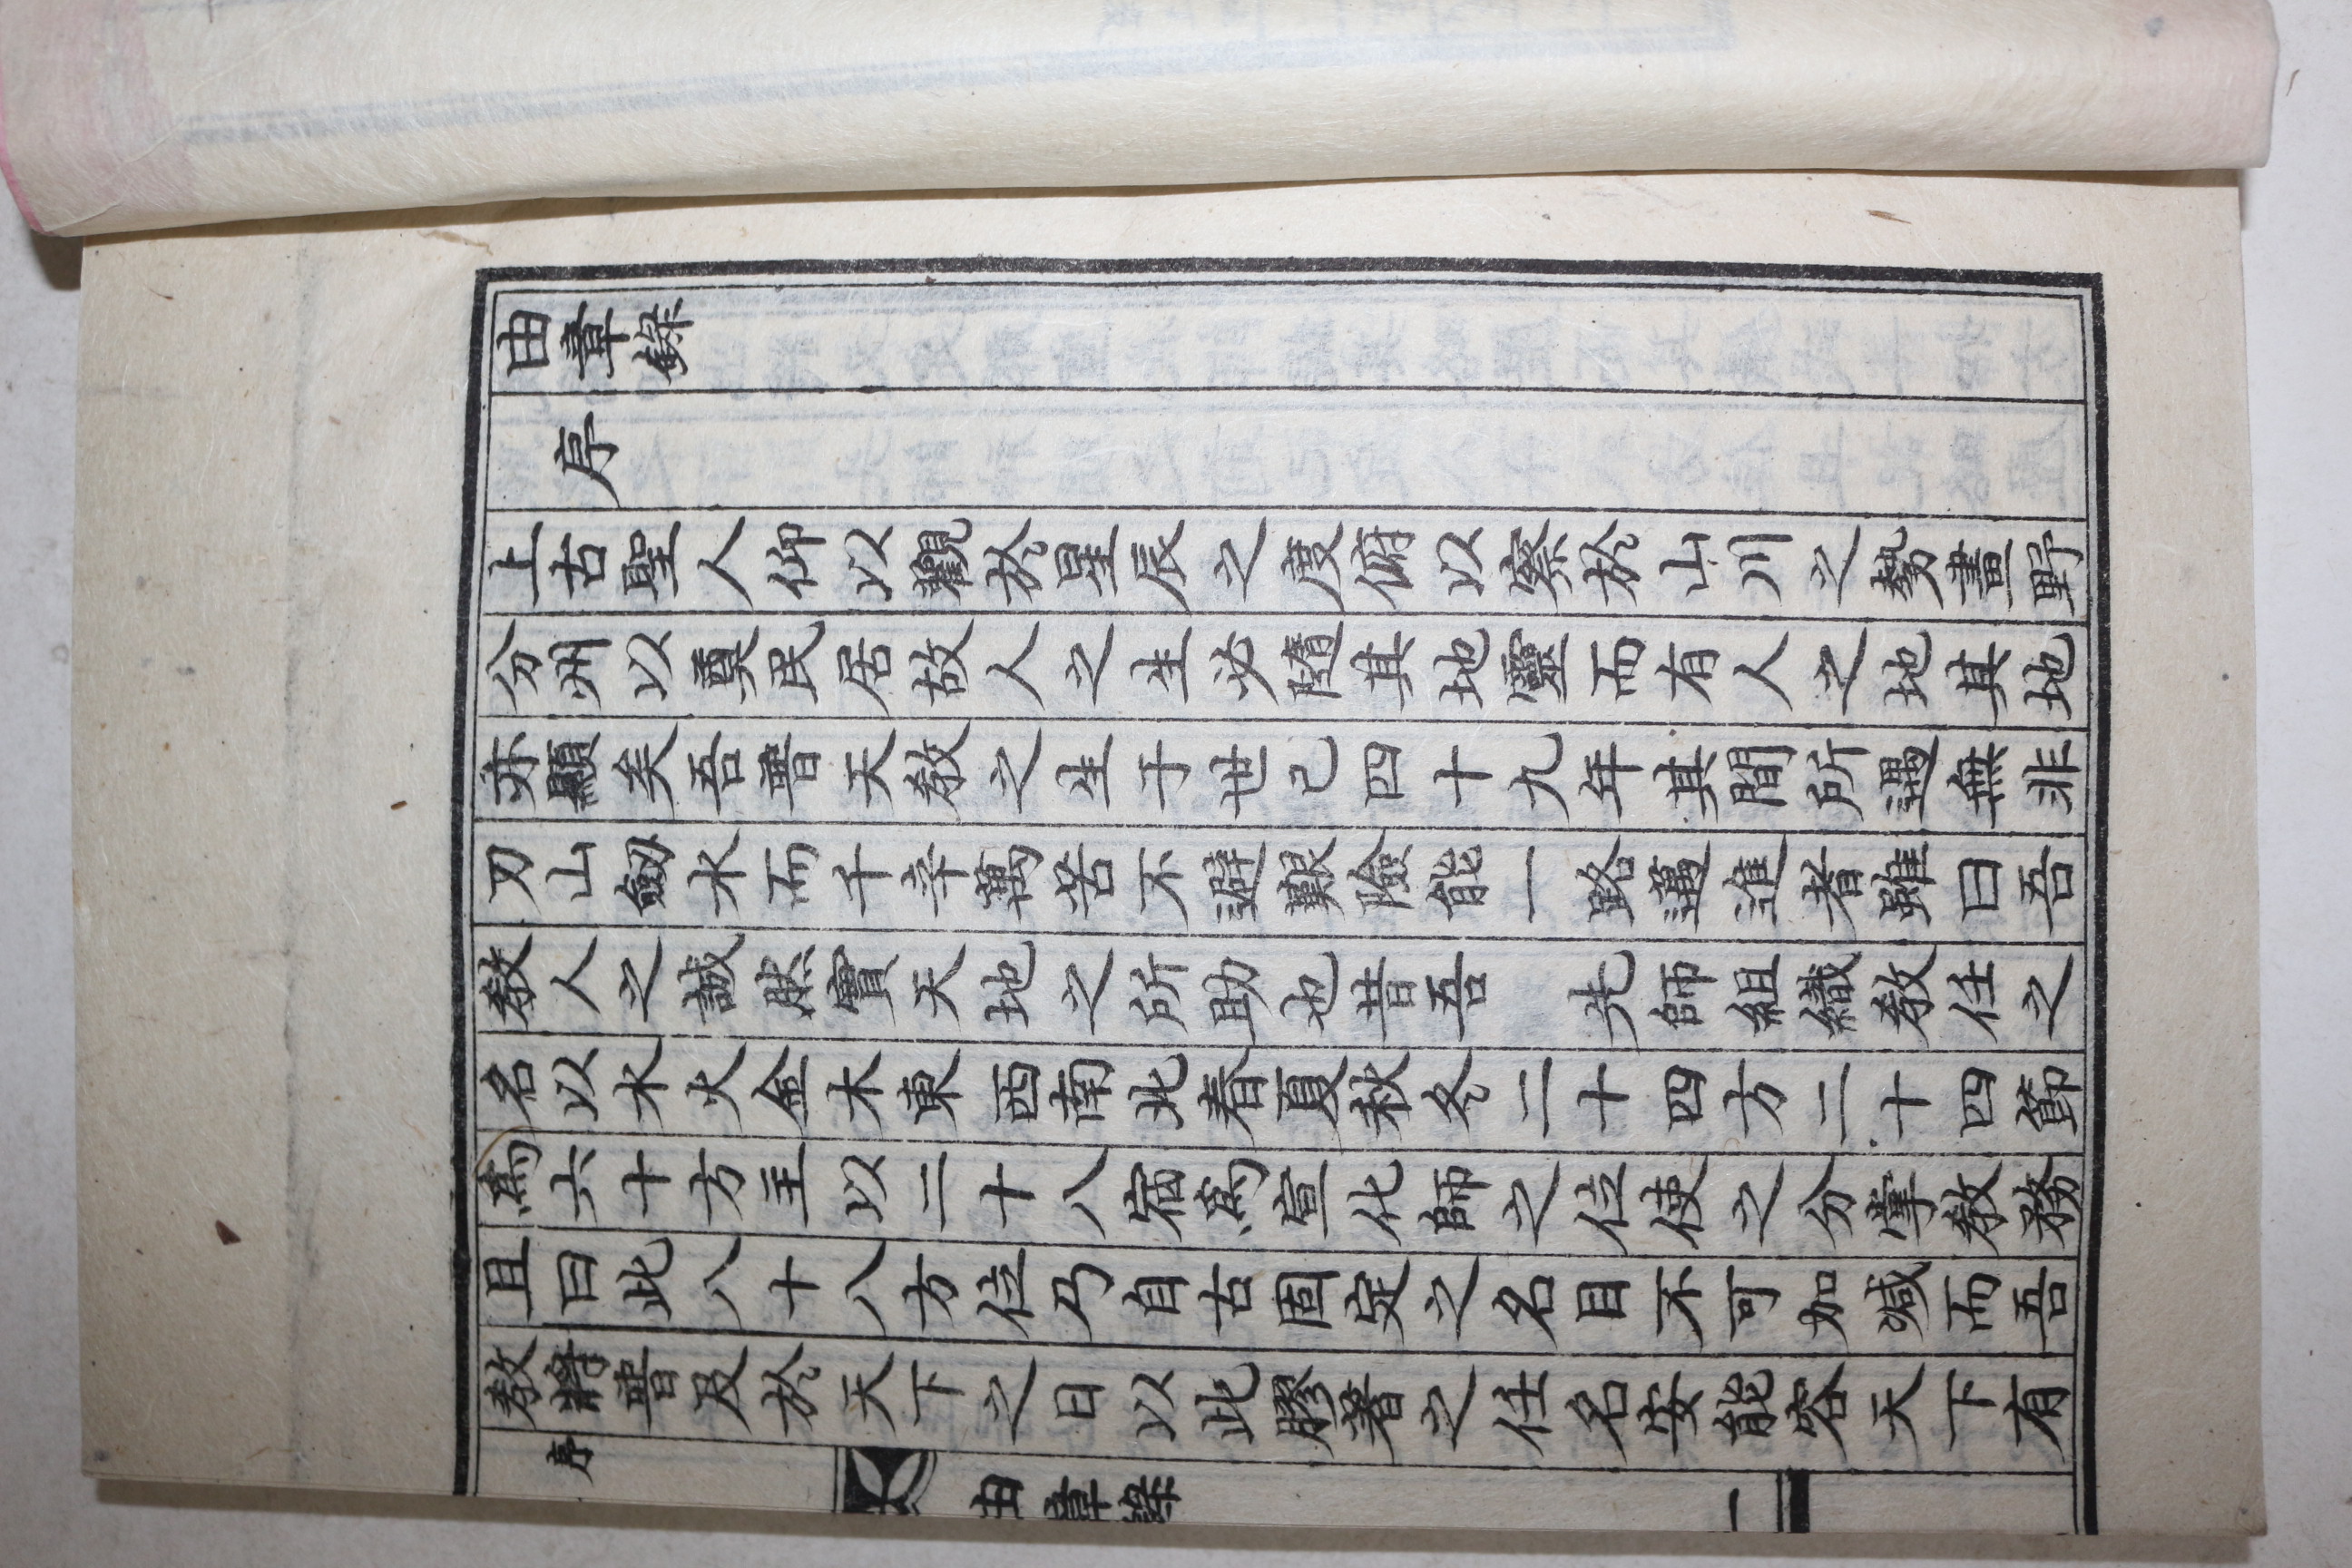 由章錄
序
上古聖人仰以觀於星辰之度俯以察於山川之勢畫野
分州以奠民居故人之生必隨其地靈而有人之地其地
亦顯矣吾普天教之生于世己四十九年其間所遇無非
刃山劒水而千辛萬苦不避艱險能一路邁進者雖曰吾
教人之誠然實天地之所助也昔吾 先師組織教任之
名以水火金木東西南北春夏秋冬二十四方二十四節
爲六十方主以二十八宿爲宣化師之位使之分掌教務
且曰此八十八方位乃自古固定之名目不可加減而吾
教將普及於天下之日以此膠著之任名安能容天下有
序
由章錄
一